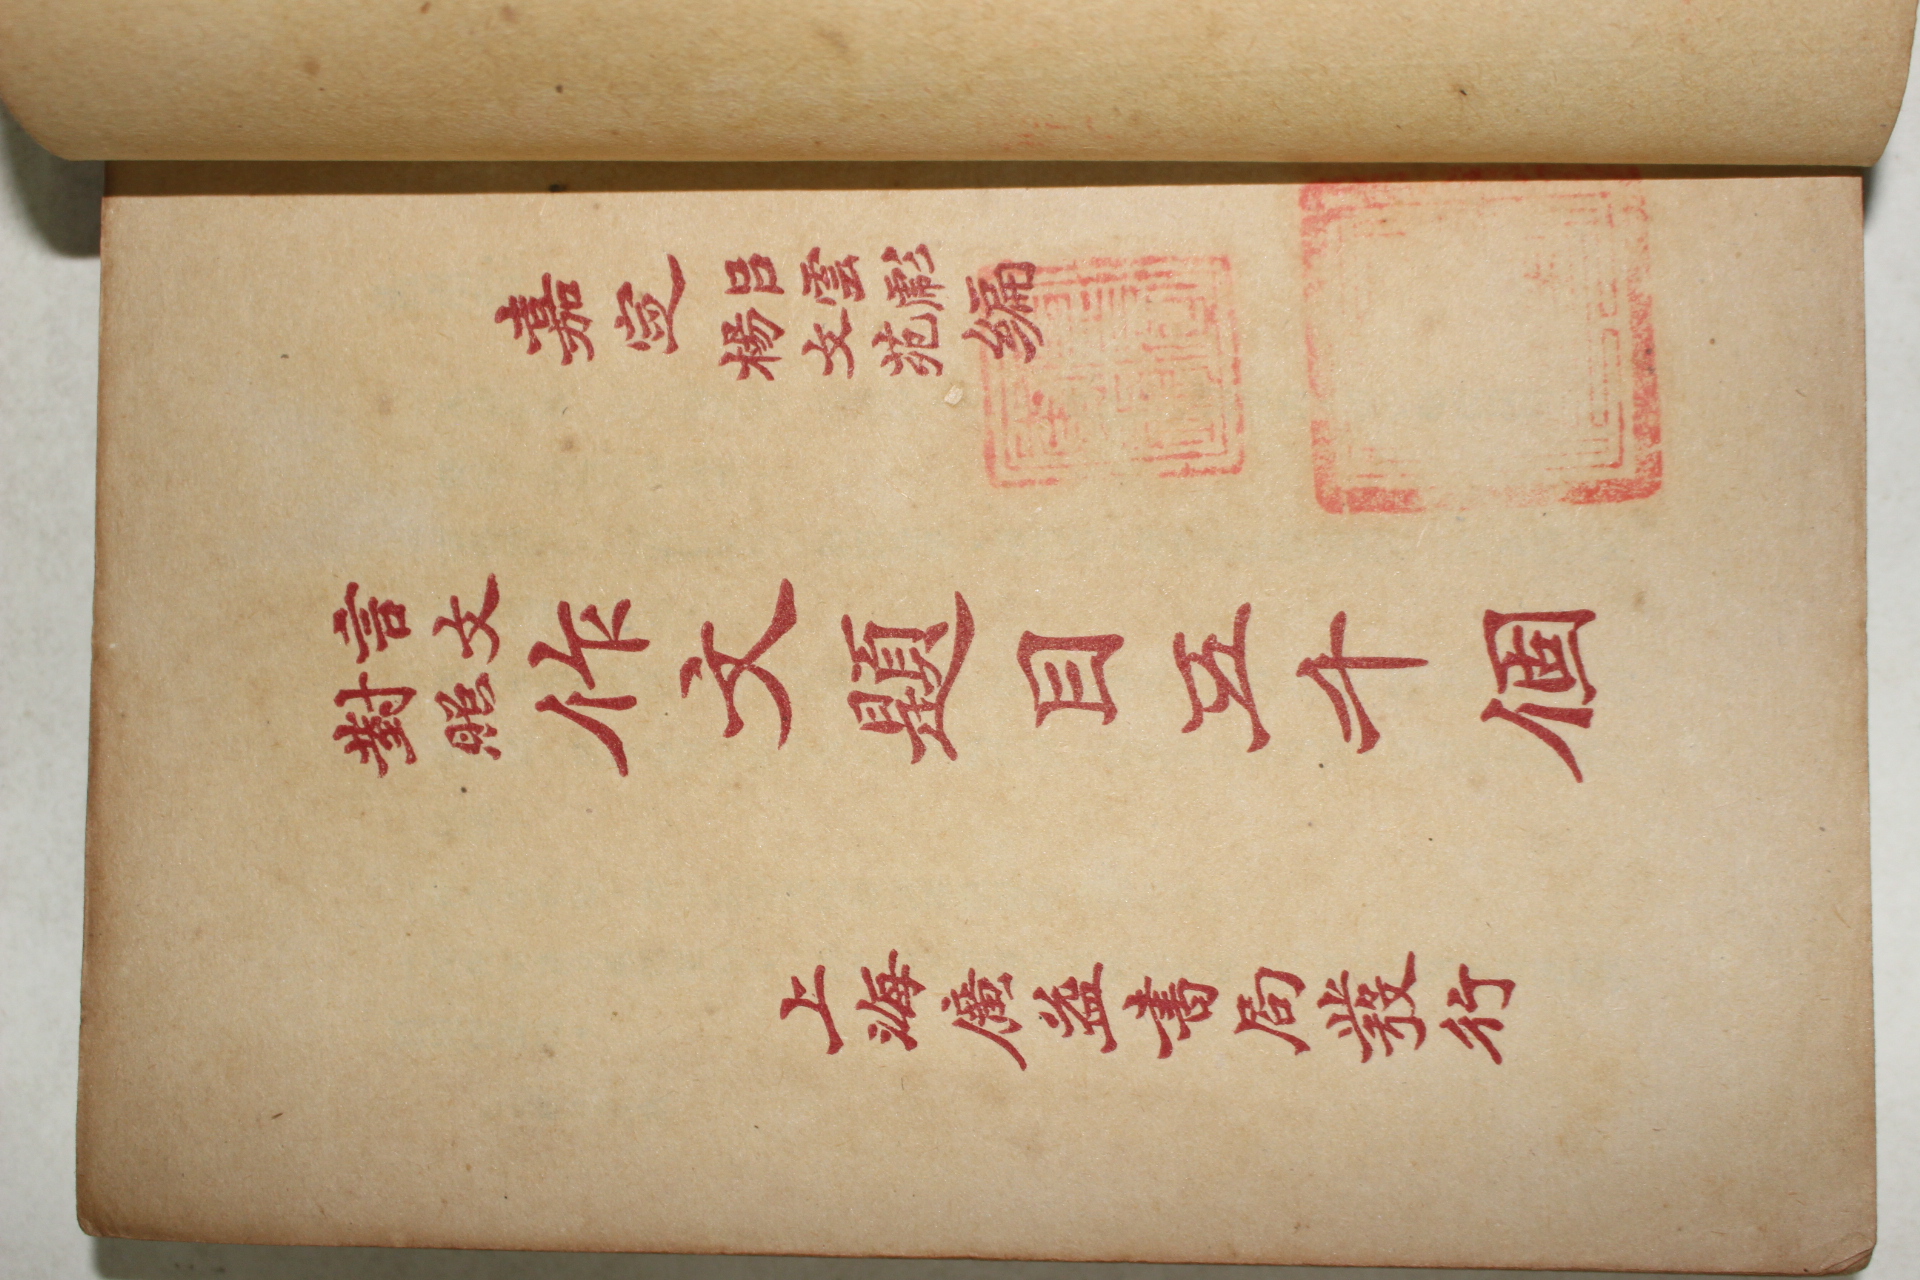 嘉定
呂雲彪
楊文苑
編
言文
對照
作文題目五十個
上海廣益書局發行